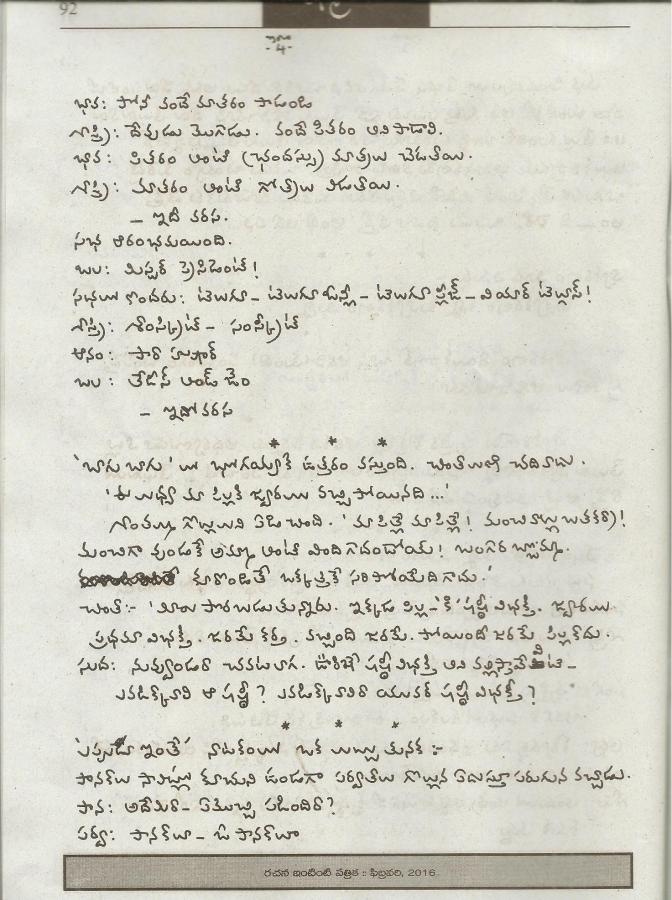 92
పేజి
-4-
భావ: పోనీ వందే మాతరం పాడండి
శాస్త్రి: దేవుడు మొగాడు. వందే పితరం అని పాడాలి.
భావ: పితరం అంటే (ఛందస్సు) మాత్రలు చెడుతాయి.
శాస్త్రి: మాతరం అంటే గోత్రాలు చెడుతాయి.
- ఇదీ వరస.
సభ ఆరంభమయింది.
బల: మిస్టర్ ప్రెసిడెంట్!
సభలో కొందరు: టెలుగూ - టెలుగూ ఓన్లీ - టెలుగూ ప్లీజ్ - వియార్ టెల్గూస్!
శాస్త్రి: శాంస్క్రిట్ - సంస్క్రిట్
ఆనం: ఫార్ హుజూర్
బల: లేడీస్ అండ్ జెం
- ఇదో వరస
* * *
'బాగు బాగు' లో భోగయ్యకి ఉత్తరం వస్తుంది. చింతలపాటి చదివాడు.
'ఈ మధ్య మా పిల్లికి జ్వరము వచ్చి పోయినది ...'
గంతయ్య గొల్లుమని ఏడ్చింది. 'మా పిల్లే మా పిల్లే! మంచివాళ్లు బతకరు)!
మంచిగా వుండుకే అమ్మా అంటే వింది గాదండోయ్! బంగారి బొమ్మ.
కూకొండితే ఒక్కళ్లకే సరిపోయేది గాదు.'
చింత:- 'మీరు పొరబడుతున్నారు. ఇక్కడ పిల్ల - 'కి' షష్ఠీ విభక్తి. జ్వరము
ప్రథమా విభక్తి. జ్వరమే కర్త. వచ్చింది జ్వరమే. పోయిందీ జ్వరమే పిల్లకాదు.
సుద: నువ్వుండర్ చవటలాగ. ఊరికే షష్ఠీ విభక్తి అని వల్లిస్తావేమిటి -
ఎవడిక్కావాలి ఆ షష్ఠి? ఎవడిక్కావాలి యువర్ షష్ఠీ విభక్తి?
* * *
'ఎప్పుడూ ఇంతే' నాటకంలో ఒక మచ్చు తునక :-
పానకాలు సావిట్లో కూచుని ఉండగా పర్వతాలు గొల్లున ఏడుస్తూ పరుగున వచ్చాడు.
పాన: అదేమిటి - ఏమొచ్చి పడిందిరా?
పర్వ: పానకాలూ - ఓ పానకాలూ
రచన ఇంటింటి పత్రిక :: ఫిబ్రవరి, 2016